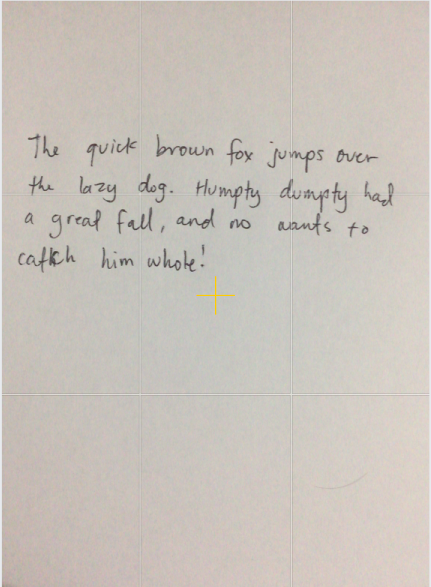 The quick brown fox jumps over
the lazy dog. Humpty dumpty had
a great fall, and no wants to
him whole!